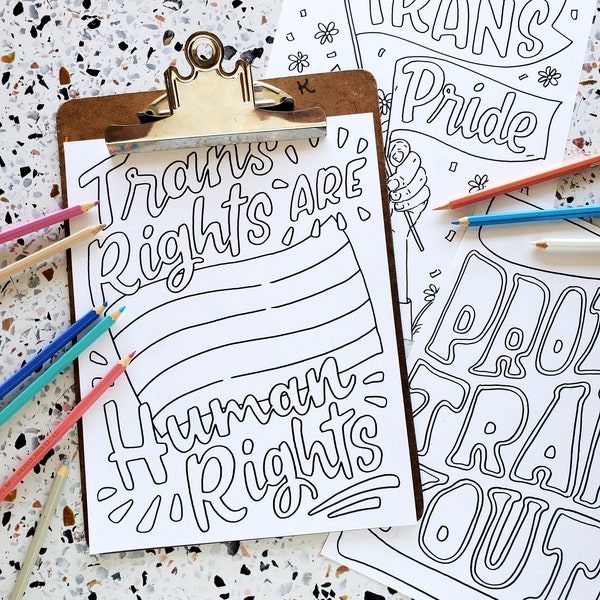 Trans
Rights ARE
Human
Rights
K
TRANS
Pride
PRO
TRA
OUT